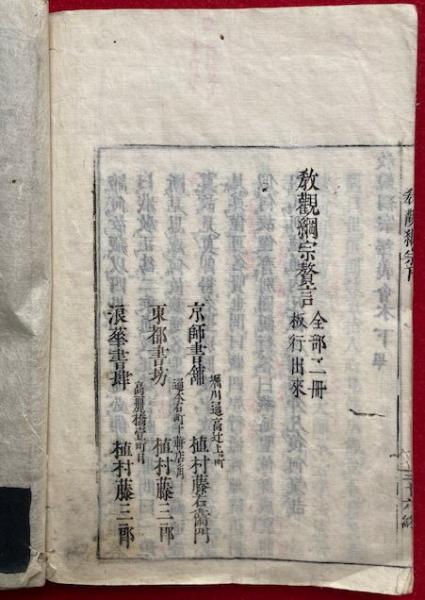 教觀綱宗下
教觀綱宗贅言 全部二冊
板行出來
堀川通高辻上町
京師書舗 植村藤右衛門
通本石町十軒店角
東都書坊 植村藤三郎
高麗橋壹町目
浪華書肆 植村藤三郎
三十六終